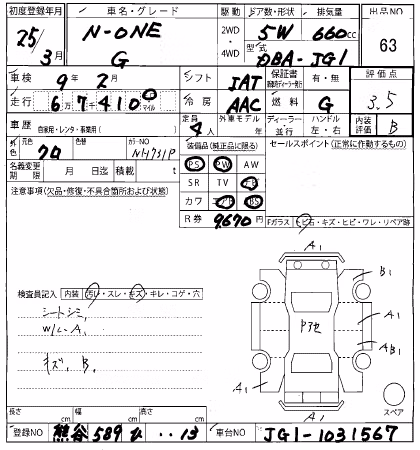 初度登録年月 車名・グレード 駆動 ドア数・形状 排気量 出品NO
25/3月 N-ONE G 2WD・4WD 5W 660cc 63
型式 DBA-JG1
車検 9年2月 シフト IAT 保証書 有・無 評価点 3.5
走行 67410 マイル 冷房 AAC 燃料 G
車歴 自家用・レンタ・事業用( ) 定員 4人 外車モデル 年 ディーラー・並行 ハンドル 左・右 内装評価 B
外色 元色 クロ 色替 カラーNO NH731P 装備品(純正品に限る) セールスポイント(正常に動作する)
名義変更期限 月 日迄 積載 PS PW AW
SR TV ナビ
注意事項(欠品・修復・不具合箇所および状態) カワ エアB ABS
R券 9670円 Fガラス トビ石・キズ・ヒビ・ワレ・リペア跡
検査員記入 内装 汚レ・スレ・キズ・キレ・コゲ・穴
シートシミ,
W/L A,
キズ, B,
A1
B1
A1
AB1
A1
A1
スペア
長さ cm 幅 cm 高さ cm
登録NO 熊谷 589 ひ ‥13 車台NO JG1-1031567